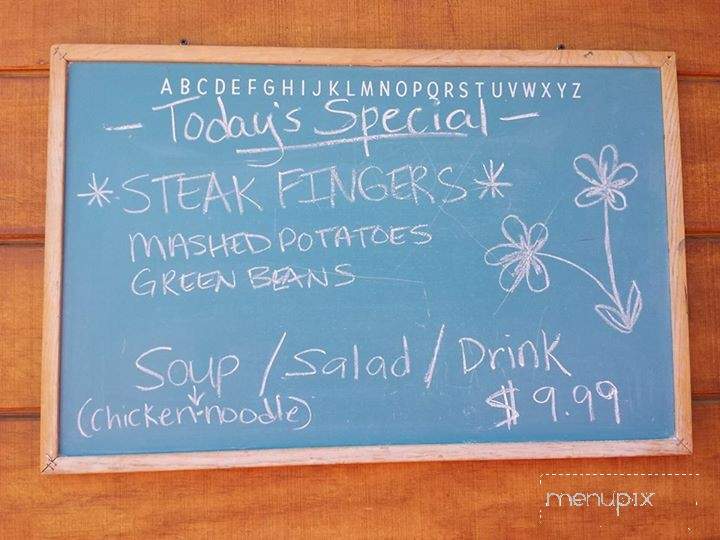 ABCDEFGHIJKLMNOPQRSTUVWXYZ
- Today's Special -
* STEAK FINGERS *
MASHED POTATOES
GREEN BEANS
Soup / Salad / Drink
(chicken-noodle) $9.99
menupix